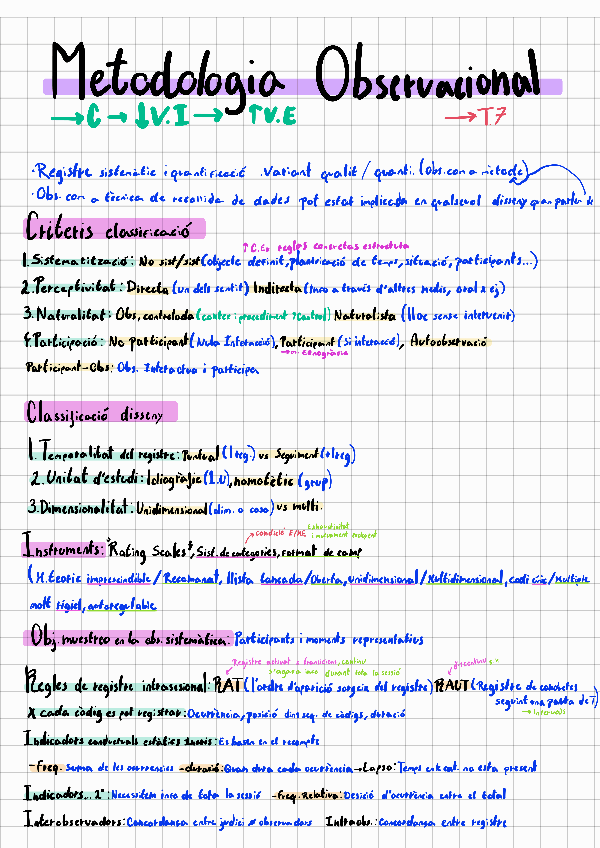 Metodologia Observacional
→ C → ↓V.I → ↑V.E → T.7
·Registre sistemàtic i quantificació .Variant qualit / quanti. (Obs. com a mètode)
·Obs. com a tècnica de recollida de dades pot estar implicada en qualsevol disseny
Criteris classificació
↑C.E. regles concretes estructura
1.Sistematització: No sist/sist (objecte definit, planificació de temps, situació, participants...)
2.Perceptivitat: Directa (un dels sentit) Indirecta (Info a través d'altres medis, oral x ej)
3.Naturalitat: Obs. controlada (context i procediment ↑Control) Naturalista (lloc sense intervenir)
4.Participació: No participant (Nula Interacció), Participant (Si interacció), Autoobservació
Etnogràfia
Participant-Obs: Obs. Interactua i participa
Classificació disseny
1.Temporalitat del registre: Puntual (1 reg.) vs Seguiment (+1reg)
2.Unitat d'estudi: Idiogràfic (1.U), nomotètic (grup)
3.Dimensionalitat: Unidimensional (dim. o caso) vs multi.
condició E/ME Exhaustivitat i mutuament excloent
Instruments: Rating Scales, Sist. de categories, format de camp
(M. Teòric imprescindible/Recomanat, llista tancada/Oberta, Unidimensional/Multidimensional, codi únic/Multiple
molt rígid, autoregulable
Obj. muestreo en la obs. sistemàtica: Participants i moments representatius
Registre activat x transicions, continu
durant tota la sessió
discontinu
Regles de registre intrasesional: RAT (l'ordre d'aparició sorgeix del registre) RAUT (Registre de conductes
seguint una pauta de T)
→ Intervals
X cada còdig es pot registrar: Ocurrència, posició dins seq. de còdigs, duració
Indicadors conductuals estàtics: Es basen en el recompte
-Freq. Suma de les ocurrencies -duració: Quan dura cada ocurrència → Lapso: Temps en cat. no esta present
Indicadors... 2º: Necessiten info de tota la sessió -Freq. Relativa: Desició d'ocurrència entre el total
Interobservadors: Concordança entre judici ≠ observadors Intraobs.: Concordança entre registre